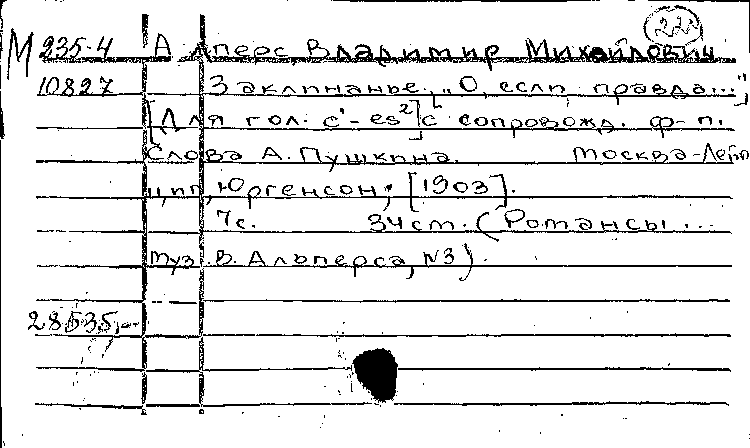 220
М 235-4 Алперс, Владимир Михайлович
10827 Заклинанье. "О, если правда..."
[Для гол. c¹-es²] с сопровожд. ф-п.
Слова А. Пушкина. Москва-Лейп
циг, Юргенсон, [1903].
7с. 34 см. (Романсы...
муз. В. Альперса, №3).
28535